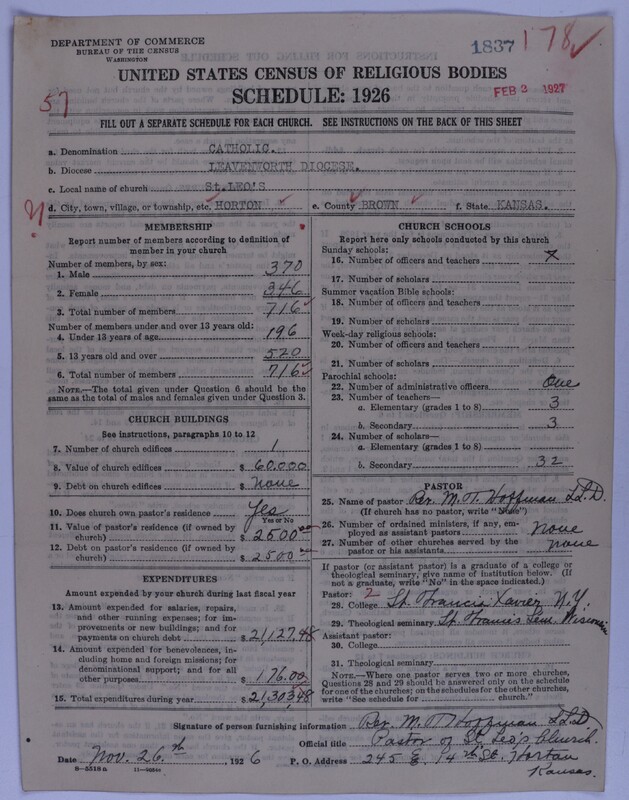 DEPARTMENT OF COMMERCE
BUREAU OF THE CENSUS
WASHINGTON
1837 178
UNITED STATES CENSUS OF RELIGIOUS BODIES
SCHEDULE: 1926
FEB 3 1927
57
FILL OUT A SEPARATE SCHEDULE FOR EACH CHURCH. SEE INSTRUCTIONS ON THE BACK OF THIS SHEET
a. Denomination CATHOLIC.
b. Diocese LEAVENWORTH DIOCESE.
c. Local name of church St. LEO'S
d. City, town, village, or township, etc. HORTON e. County BROWN f. State KANSAS.
MEMBERSHIP
Report number of members according to definition of member in your church
Number of members, by sex:
1. Male 370
2. Female 346
3. Total number of members 716
Number of members under and over 13 years old:
4. Under 13 years of age 196
5. 13 years old and over 520
6. Total number of members 716
NOTE.—The total given under Question 6 should be the same as the total of males and females given under Question 3.
CHURCH BUILDINGS
See instructions, paragraphs 10 to 12
7. Number of church edifices 1
8. Value of church edifices $ 60.000
9. Debt on church edifices $ None
10. Does church own pastor's residence Yes
Yes or No
11. Value of pastor's residence (if owned by church) $ 2500 00
12. Debt on pastor's residence (if owned by church) $ 2500 00
EXPENDITURES
Amount expended by your church during last fiscal year
13. Amount expended for salaries, repairs, and other running expenses; for improvements or new buildings; and for payments on church debt $ 21,127.48
14. Amount expended for benevolences, including home and foreign missions; for denominational support; and for all other purposes $ 176.00
15. Total expenditures during year $ 21,303.48
CHURCH SCHOOLS
Report here only schools conducted by this church
Sunday schools:
16. Number of officers and teachers X
17. Number of scholars
Summer vacation Bible schools:
18. Number of officers and teachers
19. Number of scholars
Week-day religious schools:
20. Number of officers and teachers
21. Number of scholars
Parochial schools:
22. Number of administrative officers One
23. Number of teachers—
a. Elementary (grades 1 to 8) 3
b. Secondary 3
24. Number of scholars—
a. Elementary (grades 1 to 8)
b. Secondary 32
PASTOR
25. Name of pastor Rev. M. T. Hoffman LL.D.
(If church has no pastor, write "None")
26. Number of ordained ministers, if any, employed as assistant pastors None
27. Number of other churches served by the pastor or his assistants none
If pastor (or assistant pastor) is a graduate of a college or theological seminary, give name of institution below. (If not a graduate, write "No" in the space indicated.)
Pastor: 2
28. College St. Francis Xavier N.Y.
29. Theological seminary St. Francis Sem. Wisconsin
Assistant pastor:
30. College
31. Theological seminary
NOTE.—Where one pastor serves two or more churches, Questions 28 and 29 should be answered only on the schedule for one of the churches; on the schedules for the other churches, write "See schedule for church."
Signature of person furnishing information Rev. M. T. Hoffman LL.D.
Official title Pastor of St. Leo's Church.
Date Nov. 26.th, 1926 P. O. Address 245 E. 14th St. Horton
Kansas.
8—5318a